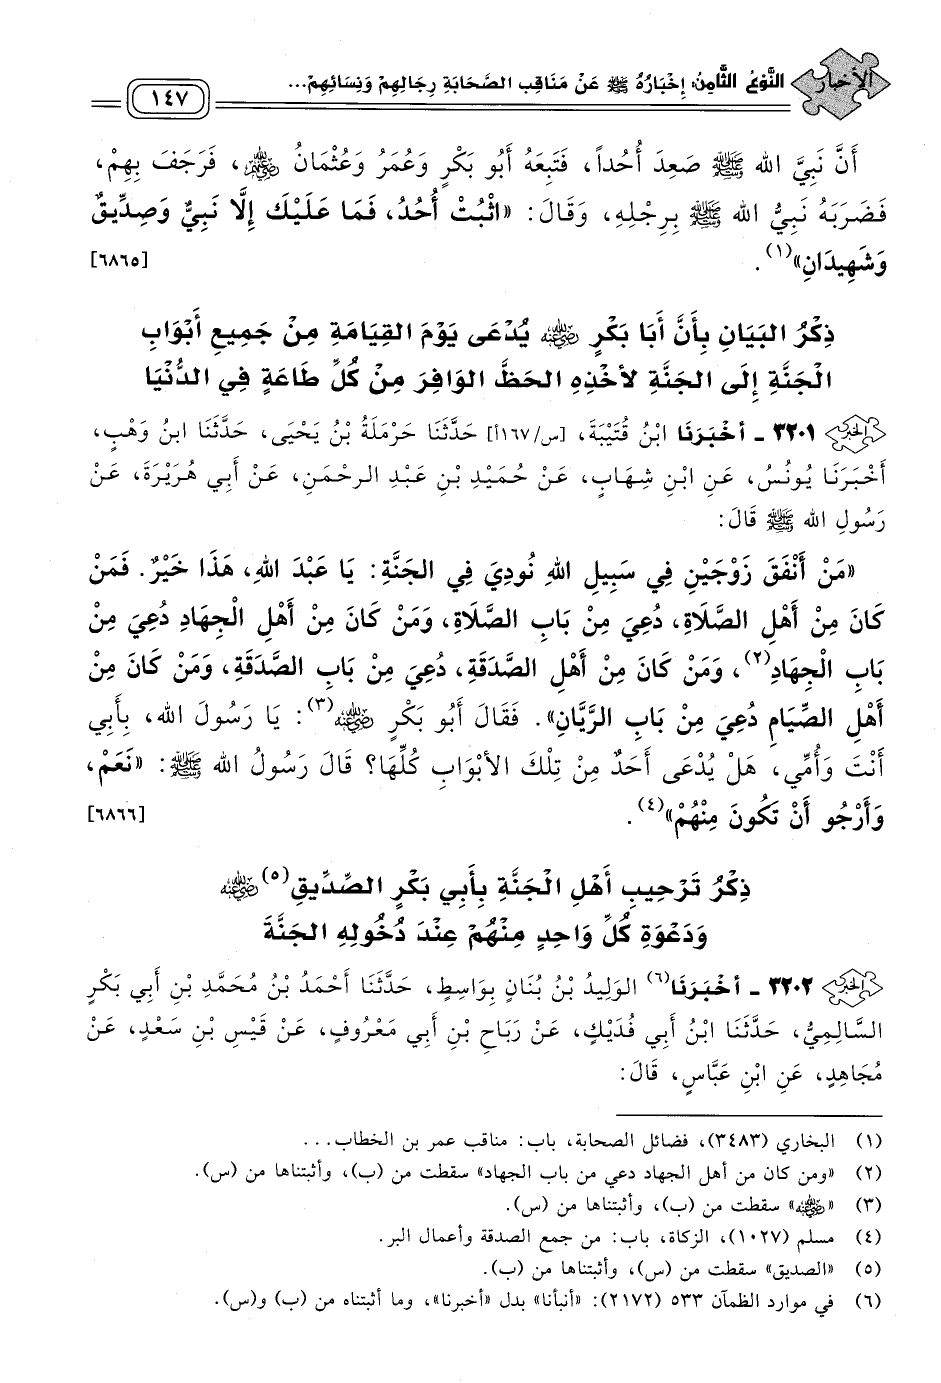 الأخبار النَّوْعُ الثَّامِنُ: إِخْبَارُهُ ﷺ عَنْ مَنَاقِبِ الصَّحَابَةِ رِجَالِهِمْ وَنِسَائِهِمْ... ١٤٧
أَنَّ نَبِيَّ الله ﷺ صَعِدَ أُحُداً، فَتَبِعَهُ أَبُو بَكْرٍ وَعُمَرُ وَعُثْمَانُ ﵃، فَرَجَفَ بِهِمْ،
فَضَرَبَهُ نَبِيُّ الله ﷺ بِرِجْلِهِ، وَقَالَ: «اثْبُتْ أُحُدُ، فَمَا عَلَيْكَ إِلَّا نَبِيٌّ وَصِدِّيقٌ
وَشَهِيدَانِ»(١). [٦٨٦٥]
ذِكْرُ البَيَانِ بِأَنَّ أَبَا بَكْرٍ ﵁ يُدْعَى يَوْمَ القِيَامَةِ مِنْ جَمِيعِ أَبْوَابِ
الْجَنَّةِ إِلَى الْجَنَّةِ لأَخْذِهِ الحَظَّ الوَافِرَ مِنْ كُلِّ طَاعَةٍ فِي الدُّنْيَا
الخبر ٣٢٠١ - أَخْبَرَنَا ابْنُ قُتَيْبَةَ، [س/١٦٧أ] حَدَّثَنَا حَرْمَلَةُ بْنُ يَحْيَى، حَدَّثَنَا ابنُ وَهْبٍ،
أَخْبَرَنَا يُونُسُ، عَنِ ابْنِ شِهَابٍ، عَنْ حُمَيْدِ بْنِ عَبْدِ الرحْمنِ، عَنْ أَبِي هُرَيْرَةَ، عَنْ
رَسُولِ الله ﷺ قَالَ:
«مَنْ أَنْفَقَ زَوْجَيْنِ فِي سَبِيلِ اللهِ نُودِيَ فِي الجَنَّةِ: يَا عَبْدَ اللهِ، هَذَا خَيْرٌ. فَمَنْ
كَانَ مِنْ أَهْلِ الصَّلَاةِ، دُعِيَ مِنْ بَابِ الصَّلَاةِ، وَمَنْ كَانَ مِنْ أَهْلِ الْجِهَادِ دُعِيَ مِنْ
بَابِ الْجِهَادِ(٢)، وَمَنْ كَانَ مِنْ أَهْلِ الصَّدَقَةِ، دُعِيَ مِنْ بَابِ الصَّدَقَةِ، وَمَنْ كَانَ مِنْ
أَهْلِ الصِّيَامِ دُعِيَ مِنْ بَابِ الرَّيَّانِ». فَقَالَ أَبُو بَكْرٍ ﵁(٣): يَا رَسُولَ الله، بِأَبِي
أَنْتَ وَأُمِّي، هَلْ يُدْعَى أَحَدٌ مِنْ تِلْكَ الأَبْوَابِ كُلِّهَا؟ قَالَ رَسُولُ الله ﷺ: «نَعَمْ،
وَأَرْجُو أَنْ تَكُونَ مِنْهُمْ»(٤). [٦٨٦٦]
ذِكْرُ تَرْحِيبِ أَهْلِ الْجَنَّةِ بِأَبِي بَكْرٍ الصِّدِّيقِ(٥) ﵁
وَدَعْوَةِ كُلِّ وَاحِدٍ مِنْهُمْ عِنْدَ دُخُولِهِ الجَنَّةَ
الخبر ٣٢٠٢ - أَخْبَرَنَا(٦) الوَلِيدُ بْنُ بُنَانٍ بِوَاسِطٍ، حَدَّثَنَا أَحْمَدُ بْنُ مُحَمَّدِ بْنِ أَبِي بَكْرٍ
السَّالِمِيُّ، حَدَّثَنَا ابْنُ أَبِي فُدَيْكٍ، عَنْ رَبَاحِ بْنِ أَبِي مَعْرُوفٍ، عَنْ قَيْسِ بْنِ سَعْدٍ، عَنْ
مُجَاهِدٍ، عَنِ ابْنِ عَبَّاسٍ، قَالَ:
(١) البخاري (٣٤٨٣)، فضائل الصحابة، باب: مناقب عمر بن الخطاب...
(٢) «ومن كان من أهل الجهاد دعي من باب الجهاد» سقطت من (ب)، وأثبتناها من (س).
(٣) «﵁» سقطت من (ب)، وأثبتناها من (س).
(٤) مسلم (١٠٢٧)، الزكاة، باب: من جمع الصدقة وأعمال البر.
(٥) «الصديق» سقطت من (س)، وأثبتناها من (ب).
(٦) في موارد الظمآن ٥٣٣ (٢١٧٢): «أنبأنا» بدل «أخبرنا»، وما أثبتناه من (ب) و(س).